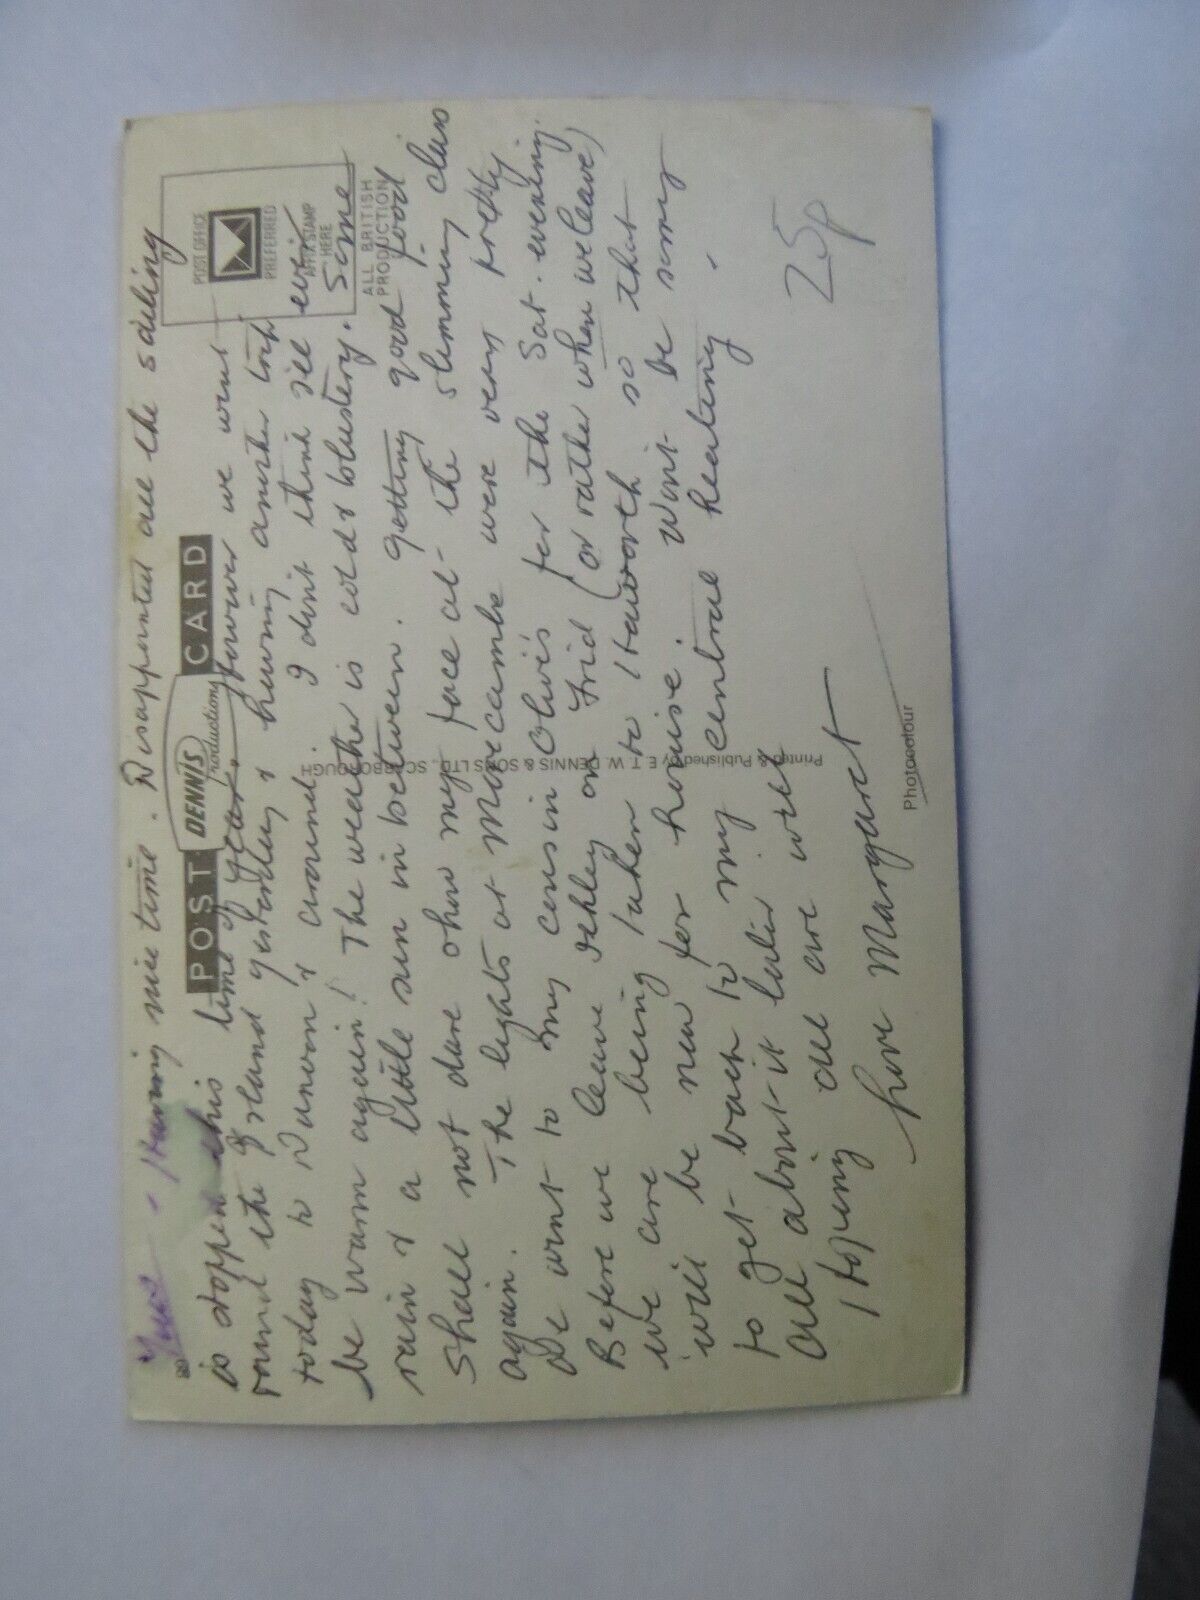 Tues - Having nice time. Disappointed all the sailing
is stopped this time of year, however we went
round the Island yesterday & having another trip
today to Dunoon & around. I don't think I'll ever
be warm again! The weather is cold & blustery. Some
rain & a little sun in between. Getting good good food
Shall not dare show my face at the slimming class
again. The lights at Morecambe were very pretty.
We went to my cousin Olive's for the Sat. evening.
Before we leave Ilkley on Frid (or rather when we leave)
we are being taken to Haworth so that
will be new for
to get back to my central heating.
All about it later
Hoping all are well
love Margaret
POST CARD
DENNIS
Productions
POST OFFICE
PREFERRED
AFFIX STAMP
HERE
ALL BRITISH
PRODUCTION
Printed & Published by E. T. W. DENNIS & SONS LTD., SCARBOROUGH
Photocolour
25p